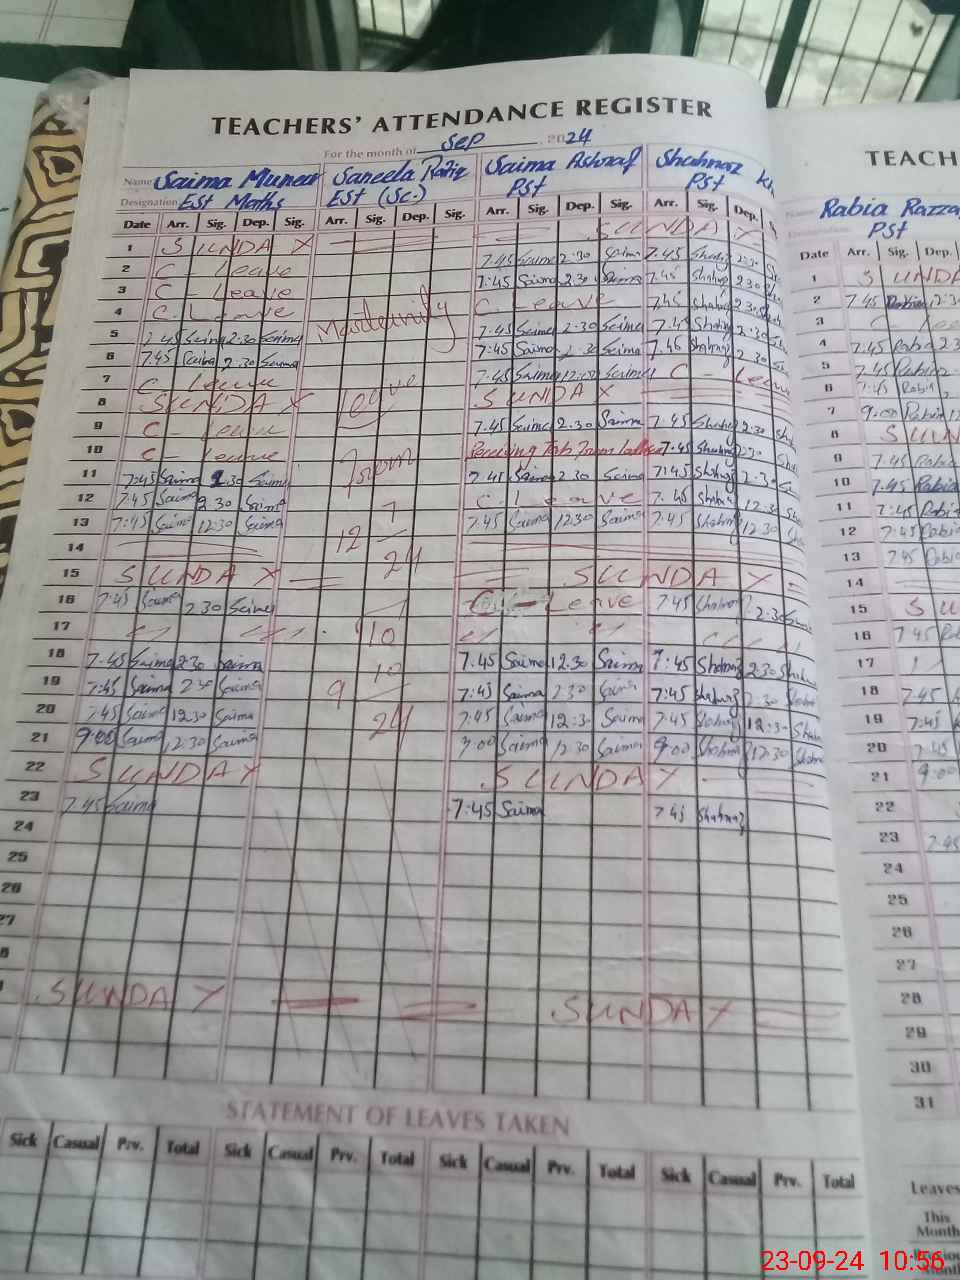 TEACHERS' ATTENDANCE REGISTER
For the month of Sep 2024
Name Saima Muneer Saneela Rafiq Saima Ashraf Shahnaz Kh
Designation EST Maths EST (Sc.) PST PST
Date Arr. Sig. Dep. Sig. Arr. Sig. Dep. Sig. Arr. Sig. Dep. Sig. Arr. Sig. Dep.
1 SUNDAY SUNDAY
2 C - Leave 7.45 Saima 2:30 Saima 7.45 Shahnaz 2:30
3 C - Leave 7:45 Saima 2.30 Saima 7.45 Shahnaz 2.30
4 C. Leave C. Leave 7.45 Shahnaz 2.30
Maternity
5 7.45 Saima 2:30 Saima 7:45 Saima 2.30 Saima 7.45 Shahnaz 2.30
6 7.45 Saima 2.30 Saima 7:45 Saima 2.30 Saima 7.45 Shahnaz 2.30
7 C - Leave 7.45 Saima 12:30 Saima C - Leave
8 SUNDAY Leave SUNDAY
9 C - Leave 7.45 Saima 2.30 Saima 7.45 Shahnaz 2.30
10 C - Leave from 7.45 Shahnaz 2:30
11 7:45 Saima 2.30 Saima 7.45 Saima 2.30 Saima 7:45 Shahnaz 2.30
12 7:45 Saima 2.30 Saima C. Leave 7.45 Shahnaz 12.30
13 7:45 Saima 12:30 Saima 12 7 24 7.45 Saima 12.30 Saima 7.45 Shahnaz 12.30
14
15 SUNDAY SUNDAY
16 7:45 Saima 2.30 Saima C - Leave 7.45 Shahnaz 2.30
17 10
18 7.45 Saima 2.30 Saima 7.45 Saima 12.30 Saima 7:45 Shahnaz 2.30 Shahnaz
19 7:45 Saima 2.30 Saima 9 10 24 7:45 Saima 2.30 Saima 7:45 Shahnaz 2.30 Shahnaz
20 7.45 Saima 12.30 Saima 7:45 Saima 12:3 Saima 7.45 Shahnaz 12:30
21 9:00 Saima 12:30 Saima 9:00 Saima 12.30 Saima 9:00 Shahnaz 12.30
22 SUNDAY SUNDAY
23 7.45 Saima 7:45 Saima 7:45 Shahnaz
24
25
26
27
SUNDAY SUNDAY
STATEMENT OF LEAVES TAKEN
Sick Casual Prv. Total Sick Casual Prv. Total Sick Casual Prv. Total Sick Casual Prv. Total
TEACH
Rabia Razza
PST
Date Arr. Sig. Dep.
1 SUNDA
2 7.45 Rabia
3 C
4 7:45 Rabia 2.3
5 7.45 Rabia
6 7:45 Rabia
7 9:00 Rabia
8 SUN
9 7.45 Rabia
10 7.45 Rabia
11 7:45 Rabia
12 7:45 Rabia
13 7.45 Rabia
14
15 SU
16 7.45
17
18 7.45
19 7:45
20 7:45
21 9:00
22
23 7.45
24
25
26
27
28
29
30
31
Leaves
This
Month
Month
23-09-24 10:56